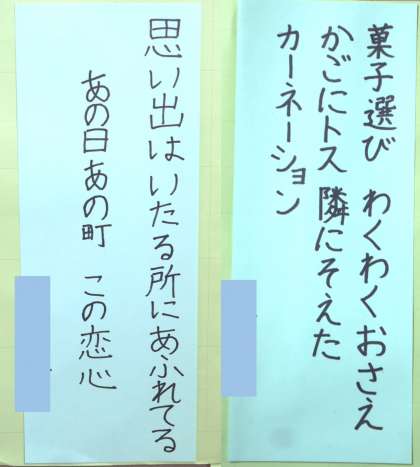 菓子選び わくわくおさえ
かごにトス 隣にそえた
カーネーション
思い出はいたる所にあふれてる
あの日あの町 この恋心